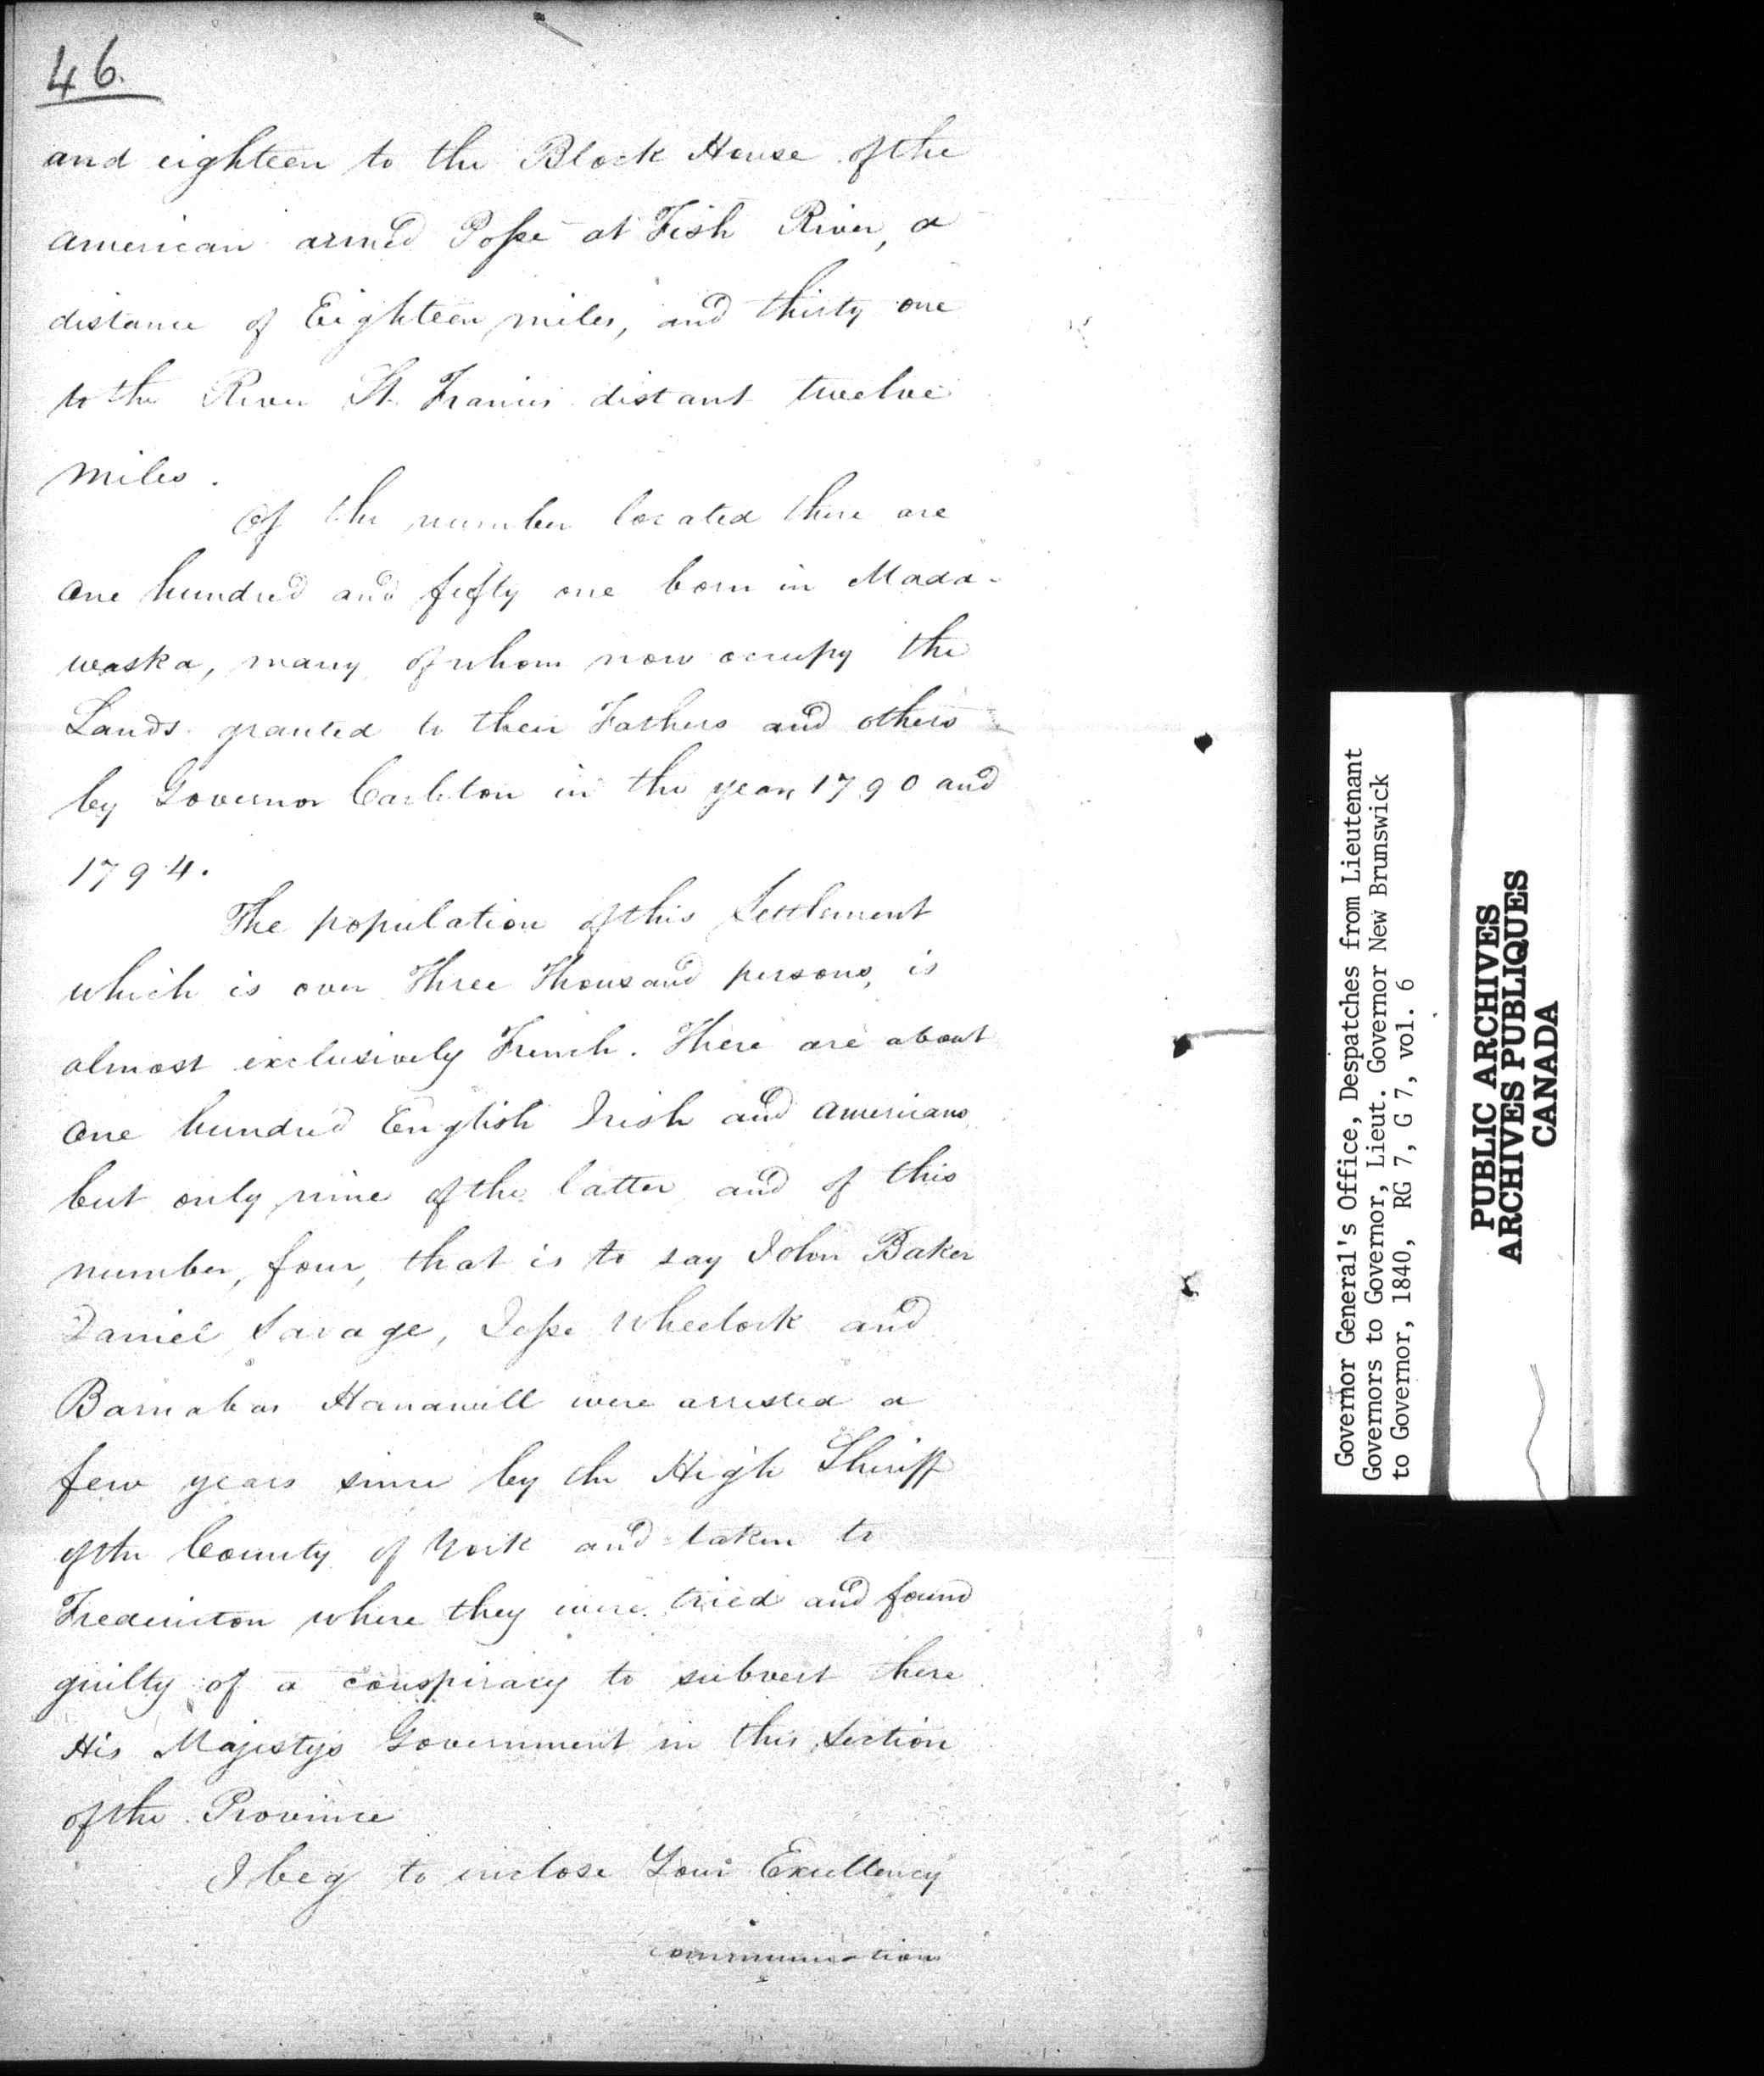 46.
and eighteen to the Block House of the
American armed Posse at Fish River, a
distance of Eighteen miles, and thirty one
to the River St. Francis distant twelve
miles.
Of the number located there are
One hundred and fifty one born in Mada-
waska, many of whom now occupy the
Lands granted to their Fathers and others
by Governor Carleton in the year 1790 and
1794.
The population of this Settlement
which is over Three Thousand persons, is
almost exclusively French. There are about
One hundred English Irish and Americans,
but only nine of the latter and of this
number, four, that is to say John Baker
Daniel Savage, Jesse Wheelock and
Barnabas Hanawell were arrested a
few years since by the High Sheriff
of the County of York and taken to
Fredericton where they were tried and found
guilty of a conspiracy to subvert there
His Majestys Government in this Section
of the Province
I beg to inclose Your Excellency
communication
Governor General's Office, Despatches from Lieutenant
Governors to Governor, Lieut. Governor New Brunswick
to Governor, 1840, RG 7, G 7, vol. 6
PUBLIC ARCHIVES
ARCHIVES PUBLIQUES
CANADA